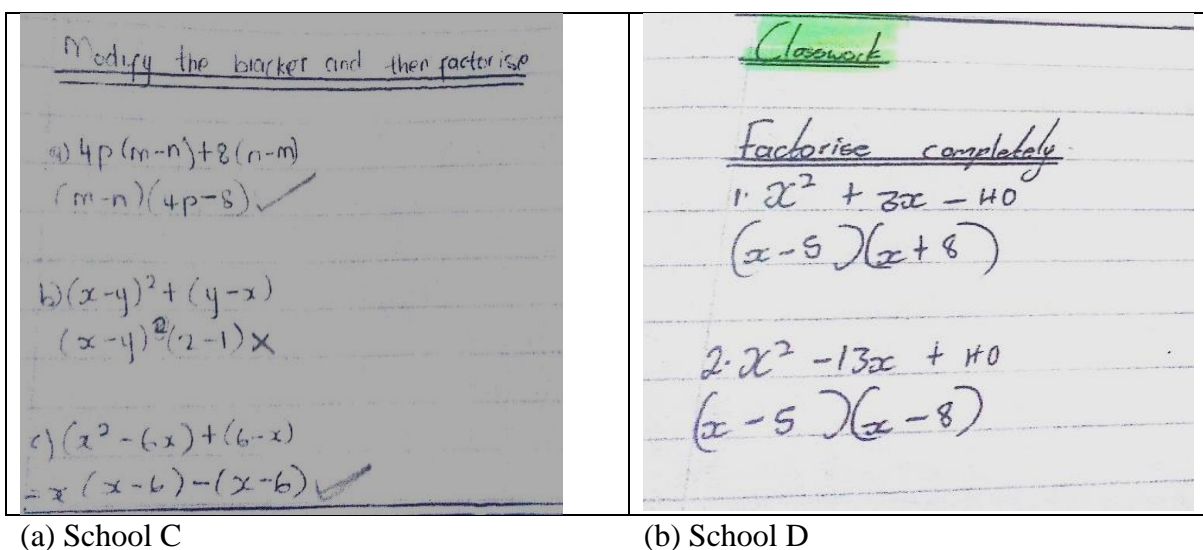 Modify the bracker and then factorise
a) 4p(m-n)+8(n-m)
(m-n)(4p-8) ✓
b) (x-y)² + (y-x)
(x-y)²(2-1) ×
c) (x²-6x)+(6-x)
= x(x-6)-(x-6) ✓
(a) School C
Classwork
Factorise completely
1. x² + 3x - 40
(x-5)(x+8)
2. x² - 13x + 40
(x-5)(x-8)
(b) School D